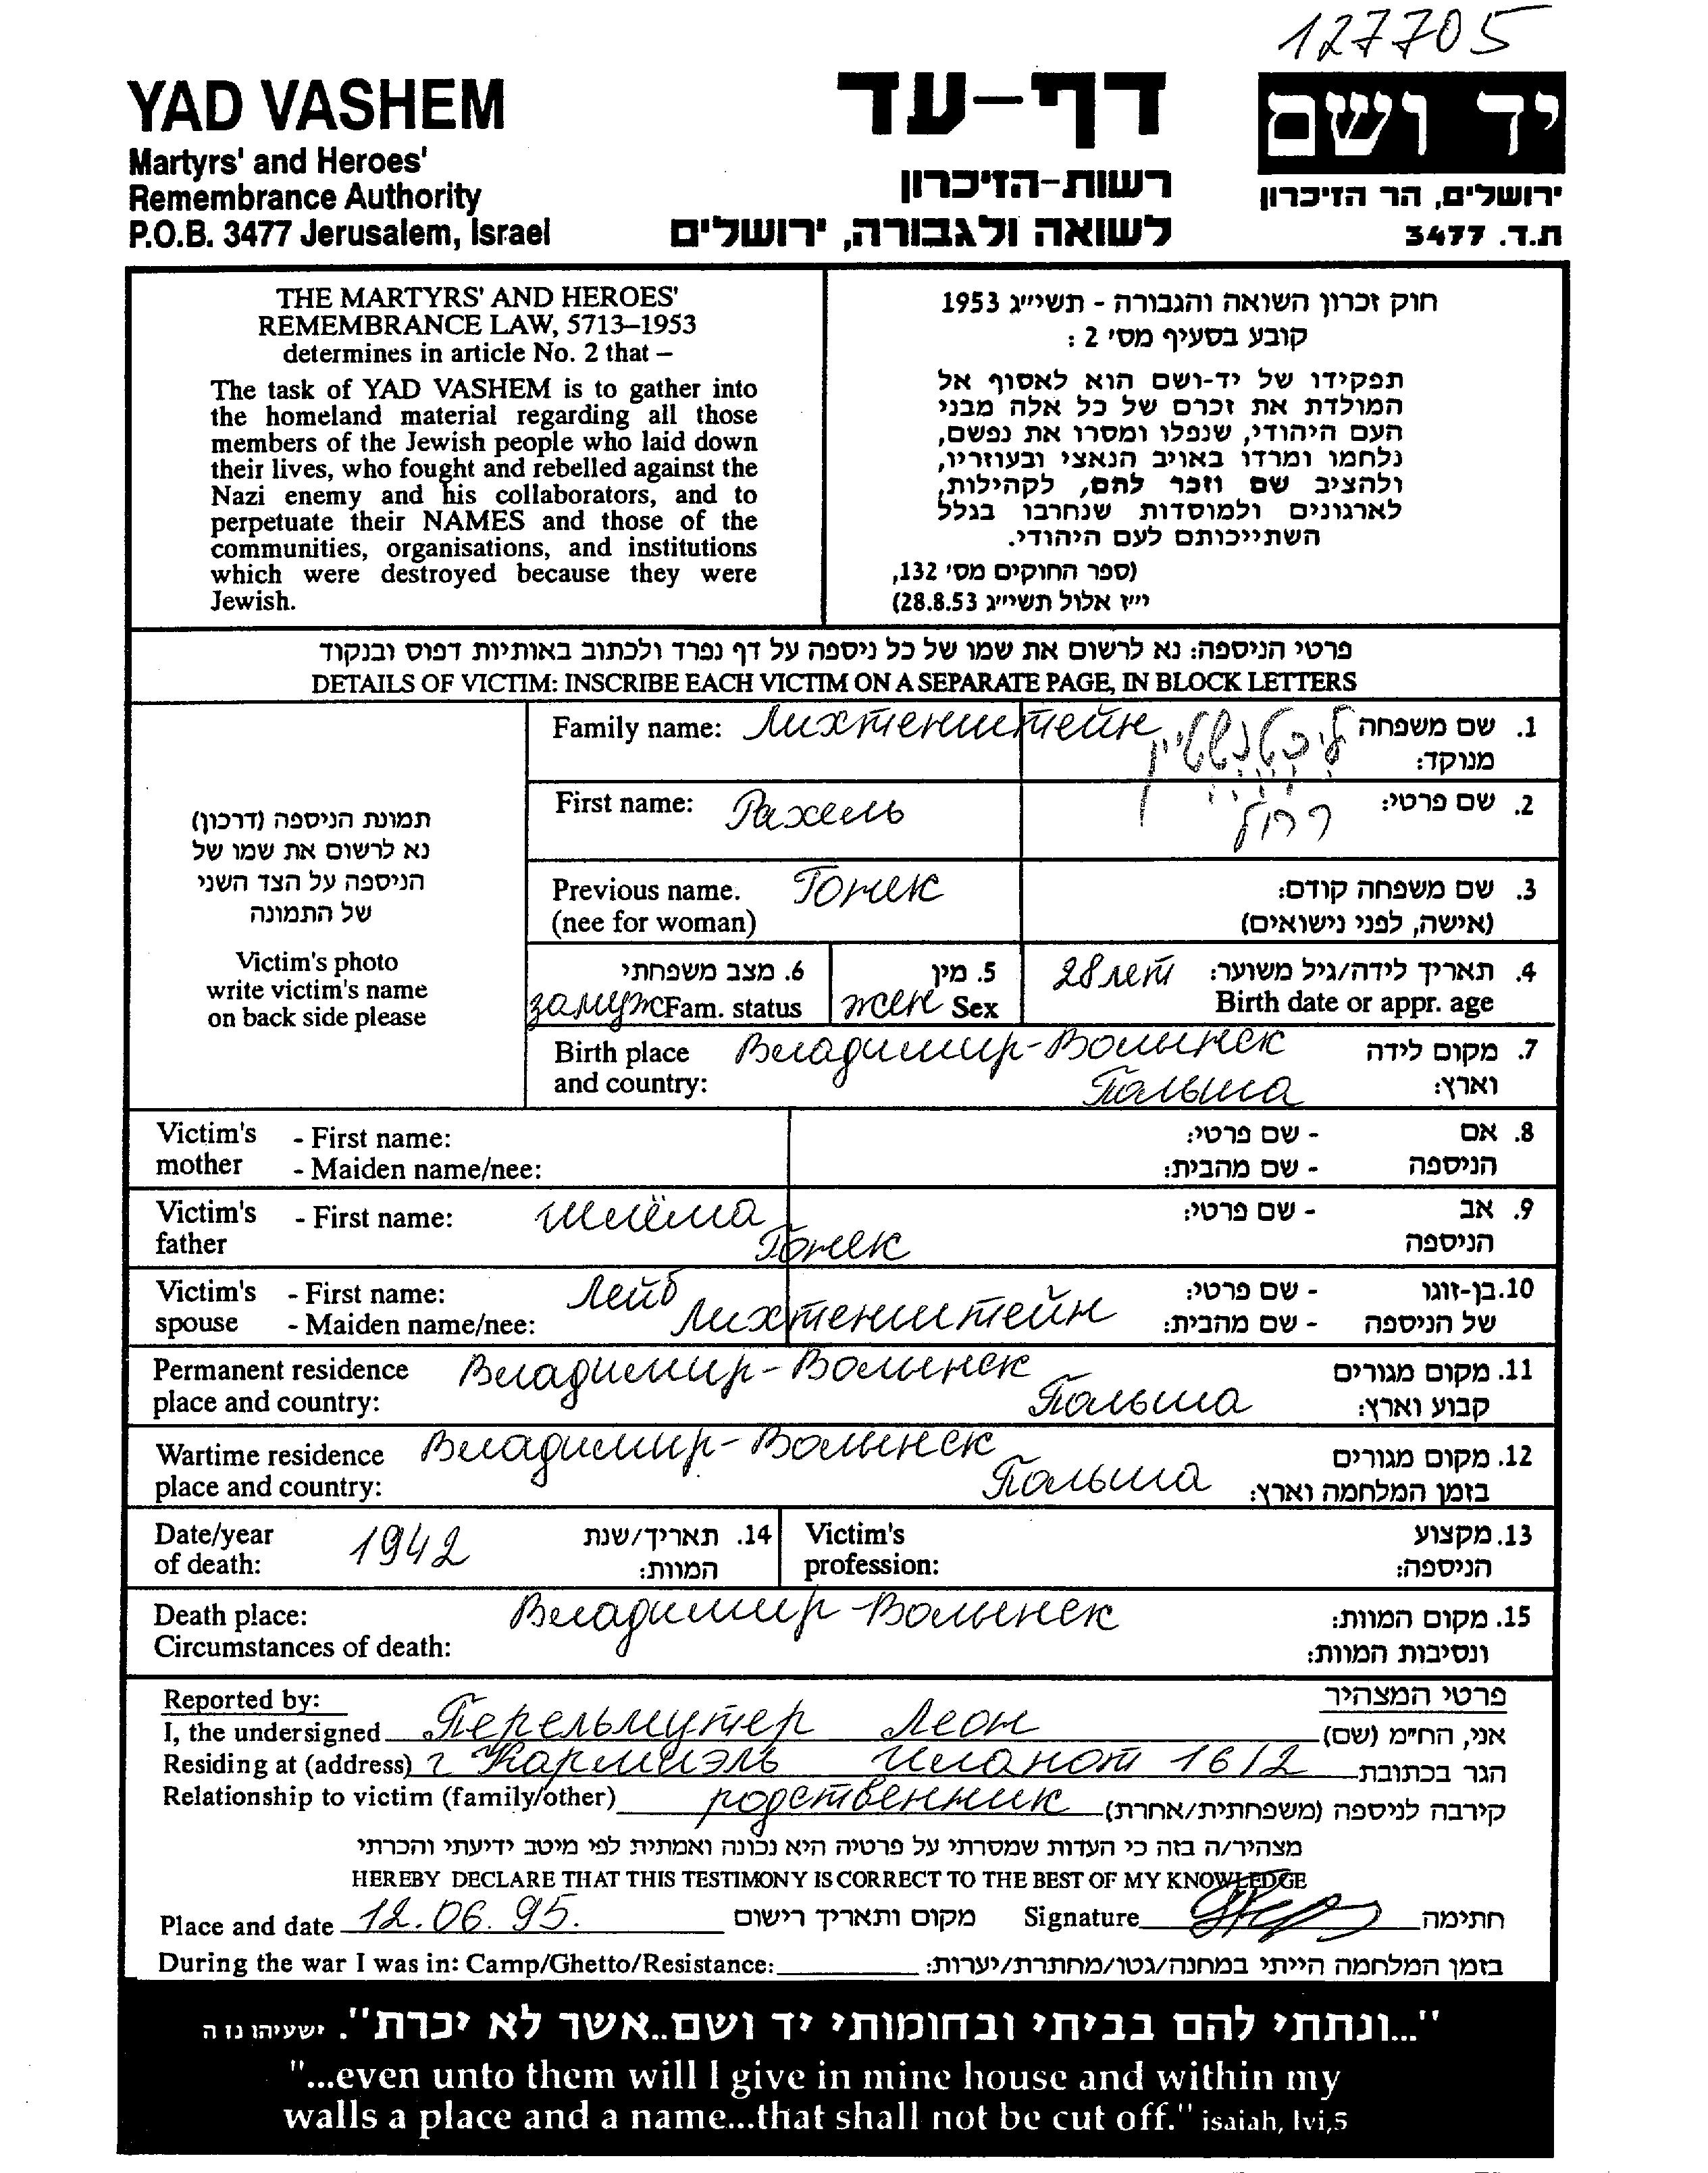 127705
YAD VASHEM
Martyrs' and Heroes'
Remembrance Authority
P.O.B. 3477 Jerusalem, Israel
דף-עד
רשות-הזיכרון
לשואה ולגבורה, ירושלים
יד ושם
ירושלים, הר הזיכרון
ת.ד. 3477
THE MARTYRS' AND HEROES'
REMEMBRANCE LAW, 5713–1953
determines in article No. 2 that –
The task of YAD VASHEM is to gather into
the homeland material regarding all those
members of the Jewish people who laid down
their lives, who fought and rebelled against the
Nazi enemy and his collaborators, and to
perpetuate their NAMES and those of the
communities, organisations, and institutions
which were destroyed because they were
Jewish.
חוק זכרון השואה והגבורה - תשי״ג 1953
קובע בסעיף מס׳ 2 :
תפקידו של יד-ושם הוא לאסוף אל
המולדת את זכרם של כל אלה מבני
העם היהודי, שנפלו ומסרו את נפשם,
נלחמו ומרדו באויב הנאצי ובעוזריו,
ולהציב שם וזכר להם, לקהילות,
לארגונים ולמוסדות שנחרבו בגלל
השתייכותם לעם היהודי.
(ספר החוקים מס׳ 132,
י״ז אלול תשי״ג 28.8.53)
פרטי הניספה: נא לרשום את שמו של כל ניספה על דף נפרד ולכתוב באותיות דפוס ובנקוד
DETAILS OF VICTIM: INSCRIBE EACH VICTIM ON A SEPARATE PAGE, IN BLOCK LETTERS
תמונת הניספה (דרכון)
נא לרשום את שמו של
הניספה על הצד השני
של התמונה
Victim's photo
write victim's name
on back side please
Family name: Лихтенштейн ליכטנשטיין 1. שם משפחה
מנוקד:
First name: Рахель רחל 2. שם פרטי:
Previous name. Гонек 3. שם משפחה קודם:
(nee for woman) (אישה, לפני נישואים)
6. מצב משפחתי 5. מין 28 лет 4. תאריך לידה/גיל משוער:
замуж Fam. status жен Sex Birth date or appr. age
Birth place Владимир-Волынск 7. מקום לידה
and country: Польша וארץ:
Victim's - First name: - שם פרטי: 8. אם
mother - Maiden name/nee: - שם מהבית: הניספה
Victim's - First name: Шлёма - שם פרטי: 9. אב
father Гонек הניספה
Victim's - First name: Лейб - שם פרטי: 10. בן-זוגו
spouse - Maiden name/nee: Лихтенштейн - שם מהבית: של הניספה
Permanent residence Владимир-Волынск 11. מקום מגורים
place and country: Польша קבוע וארץ:
Wartime residence Владимир-Волынск 12. מקום מגורים
place and country: Польша בזמן המלחמה וארץ:
Date/year 1942 14. תאריך/שנת Victim's 13. מקצוע
of death: המוות: profession: הניספה:
Death place: Владимир-Волынск 15. מקום המוות:
Circumstances of death: ונסיבות המוות:
Reported by: פרטי המצהיר
I, the undersigned Перельмутер Леон אני, הח״מ (שם)
Residing at (address) г Кармиэль иланот 16/2 הגר בכתובת
Relationship to victim (family/other) родственник קירבה לניספה (משפחתית/אחרת)
מצהיר/ה בזה כי העדות שמסרתי על פרטיה היא נכונה ואמתית לפי מיטב ידיעתי והכרתי
HEREBY DECLARE THAT THIS TESTIMONY IS CORRECT TO THE BEST OF MY KNOWLEDGE
Place and date 12.06.95. מקום ותאריך רישום Signature חתימה
During the war I was in: Camp/Ghetto/Resistance: בזמן המלחמה הייתי במחנה/גטו/מחתרת/יערות:
"...ונתתי להם בביתי ובחומותי יד ושם..אשר לא יכרת". ישעיהו נו ה
"...even unto them will I give in mine house and within my
walls a place and a name...that shall not be cut off." isaiah, lvi,5